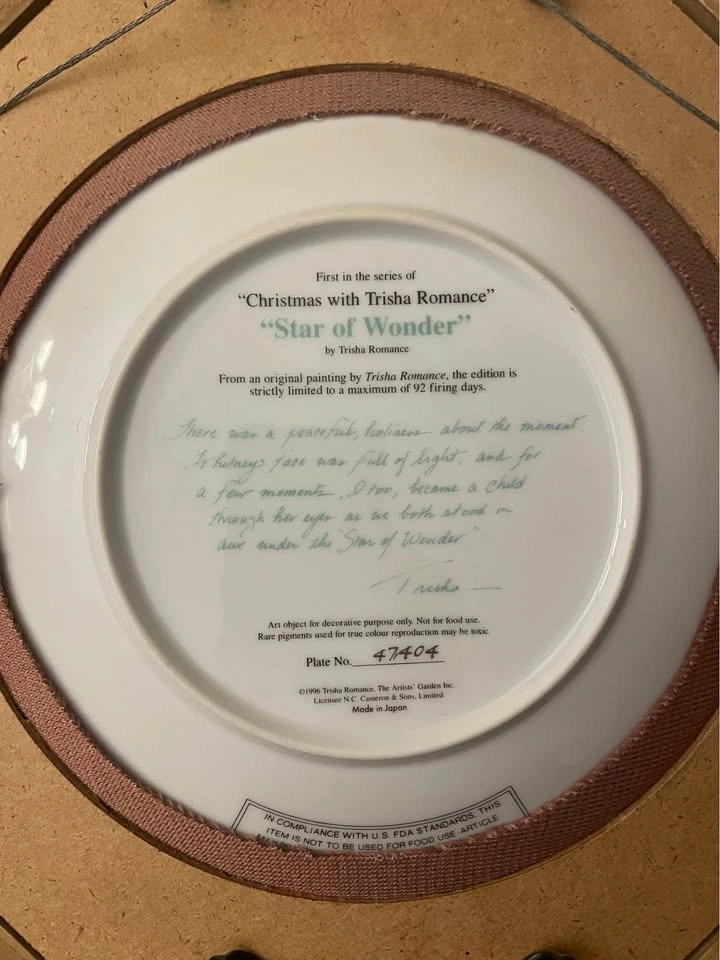 First in the series of
“Christmas with Trisha Romance”
“Star of Wonder”
by Trisha Romance
From an original painting by Trisha Romance, the edition is
strictly limited to a maximum of 92 firing days.
There was a peaceful, holiness about the moment.
Whitneys face was full of light, and for
a few moments, I too, became a child
through her eyes as we both stood in
awe under the "Star of Wonder"
Trisha
Art object for decorative purpose only. Not for food use.
Rare pigments used for true colour reproduction may be toxic.
Plate No. 47404
©1996 Trisha Romance. The Artists' Garden Inc.
Licensee N.C. Cameron & Sons, Limited
Made in Japan
IN COMPLIANCE WITH U.S. FDA STANDARDS, THIS
ITEM IS NOT TO BE USED FOR FOOD USE-ARTICLE